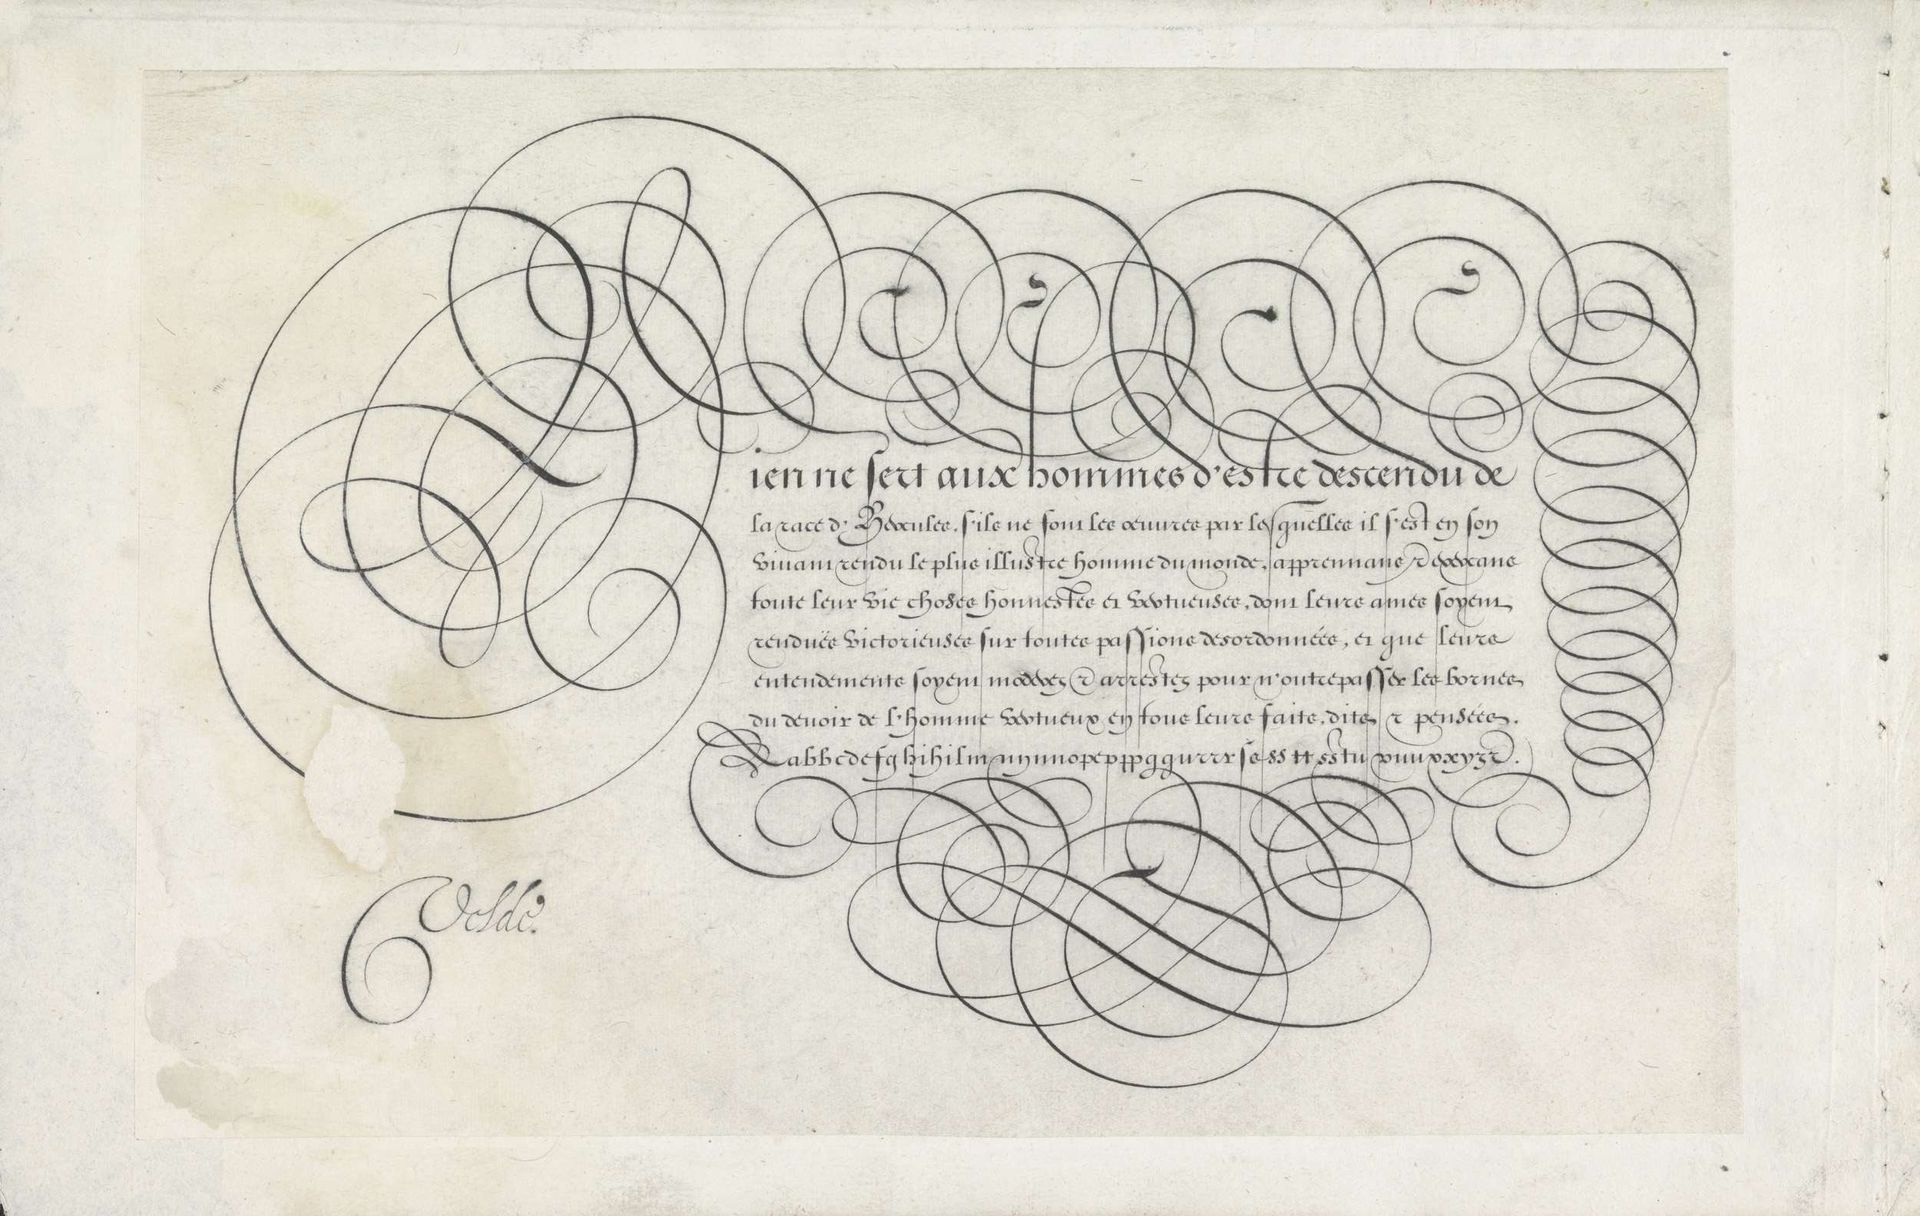 Rien ne sert aux hommes d'estre descendu de
la race d'Hercules, s'ils ne font les œuures par lesquelles il s'est en son
viuant rendu le plus illustre homme du monde, apprennans & exerçans
toute leur vie choses honnestes et vertueuses, dont leurs ames soyent
renduës victorieuses sur toutes passions desordonnées, et que leurs
entendements soyent moderez & arrestez pour n'outrepasser les bornes
du deuoir de l'homme vertueux en tous leurs faits, dits & pensées.
Velde.